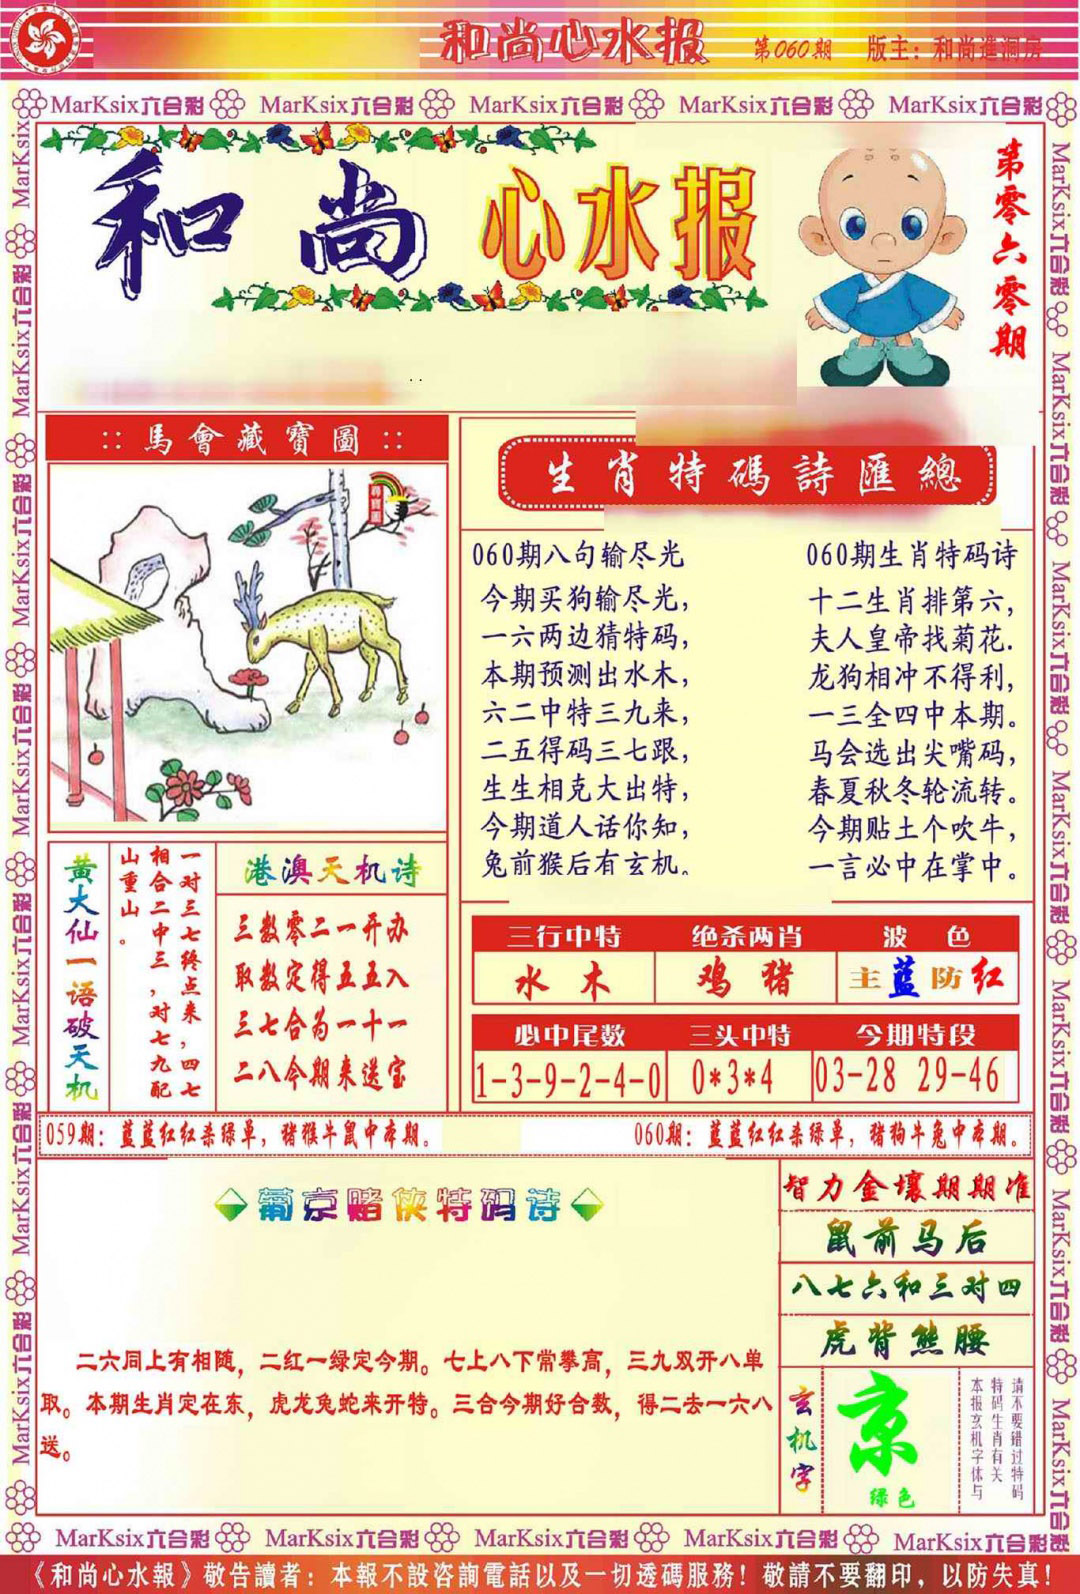 和尚心水报 第060期 版主：和尚進洞房
MarKsix六合彩 MarKsix六合彩 MarKsix六合彩 MarKsix六合彩 MarKsix六合彩
和尚心水报
第零六零期
馬會藏寶圖
尋寶圖
生肖特碼詩匯總
060期八句输尽光
今期买狗输尽光，
一六两边猜特码，
本期预测出水木，
六二中特三九来，
二五得码三七跟，
生生相克大出特，
今期道人话你知，
兔前猴后有玄机。
060期生肖特码诗
十二生肖排第六，
夫人皇帝找菊花.
龙狗相冲不得利，
一三全四中本期。
马会选出尖嘴码，
春夏秋冬轮流转。
今期贴士个吹牛，
一言必中在掌中。
黄大仙一语破天机
一对三七终点来，四七
相合二中三，对七九配
山重山。
港澳天机诗
三数零二一开办
取数定得五五入
三七合为一十一
二八今期来送宝
三行中特 绝杀两肖 波色
水木 鸡猪 主蓝防红
必中尾数 三头中特 今期特段
1-3-9-2-4-0 0*3*4 03-28 29-46
059期：蓝蓝红红杀绿单，猪猴牛鼠中本期。
060期：蓝蓝红红杀绿单，猪狗牛兔中本期。
葡京赌侠特码诗
二六同上有相随，二红一绿定今期。七上八下常攀高，三九双开八单
取。本期生肖定在东，虎龙兔蛇来开特。三合今期好合数，得二去一六八
送。
智力金壤期期准
鼠前马后
八七六和三对四
虎背熊腰
玄机字
京
绿色
请不要错过特码
特码生肖有关
本报玄机字体与
MarKsix六合彩 MarKsix六合彩 MarKsix六合彩 MarKsix六合彩 MarKsix六合彩
《和尚心水報》敬告讀者：本報不設咨詢電話以及一切透碼服務！敬請不要翻印，以防失真！